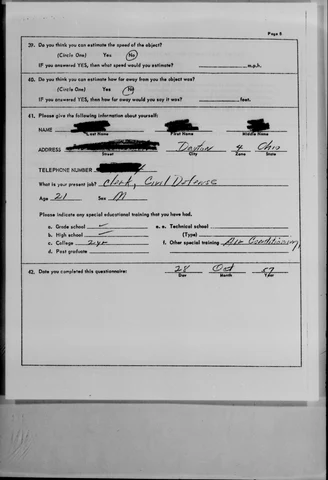 Page 8
39. Do you think you can estimate the speed of the object?
(Circle One) Yes No
IF you answered YES, then what speed would you estimate? m.p.h.
40. Do you think you can estimate how far away from you the object was?
(Circle One) Yes No
IF you answered YES, then how far away would you say it was? feet.
41. Please give the following information about yourself:
NAME
Last Name First Name Middle Name
ADDRESS Dayton 4 Ohio
Street City Zone State
TELEPHONE NUMBER
What is your present job? Clerk, Civil Defense
Age 21 Sex M
Please indicate any special educational training that you have had.
a. Grade school ✓ e. Technical school
b. High school ✓ (Type)
c. College 2 yr f. Other special training Air Conditioning
d. Post graduate
42. Date you completed this questionnaire: 28 Oct 57
Day Month Year